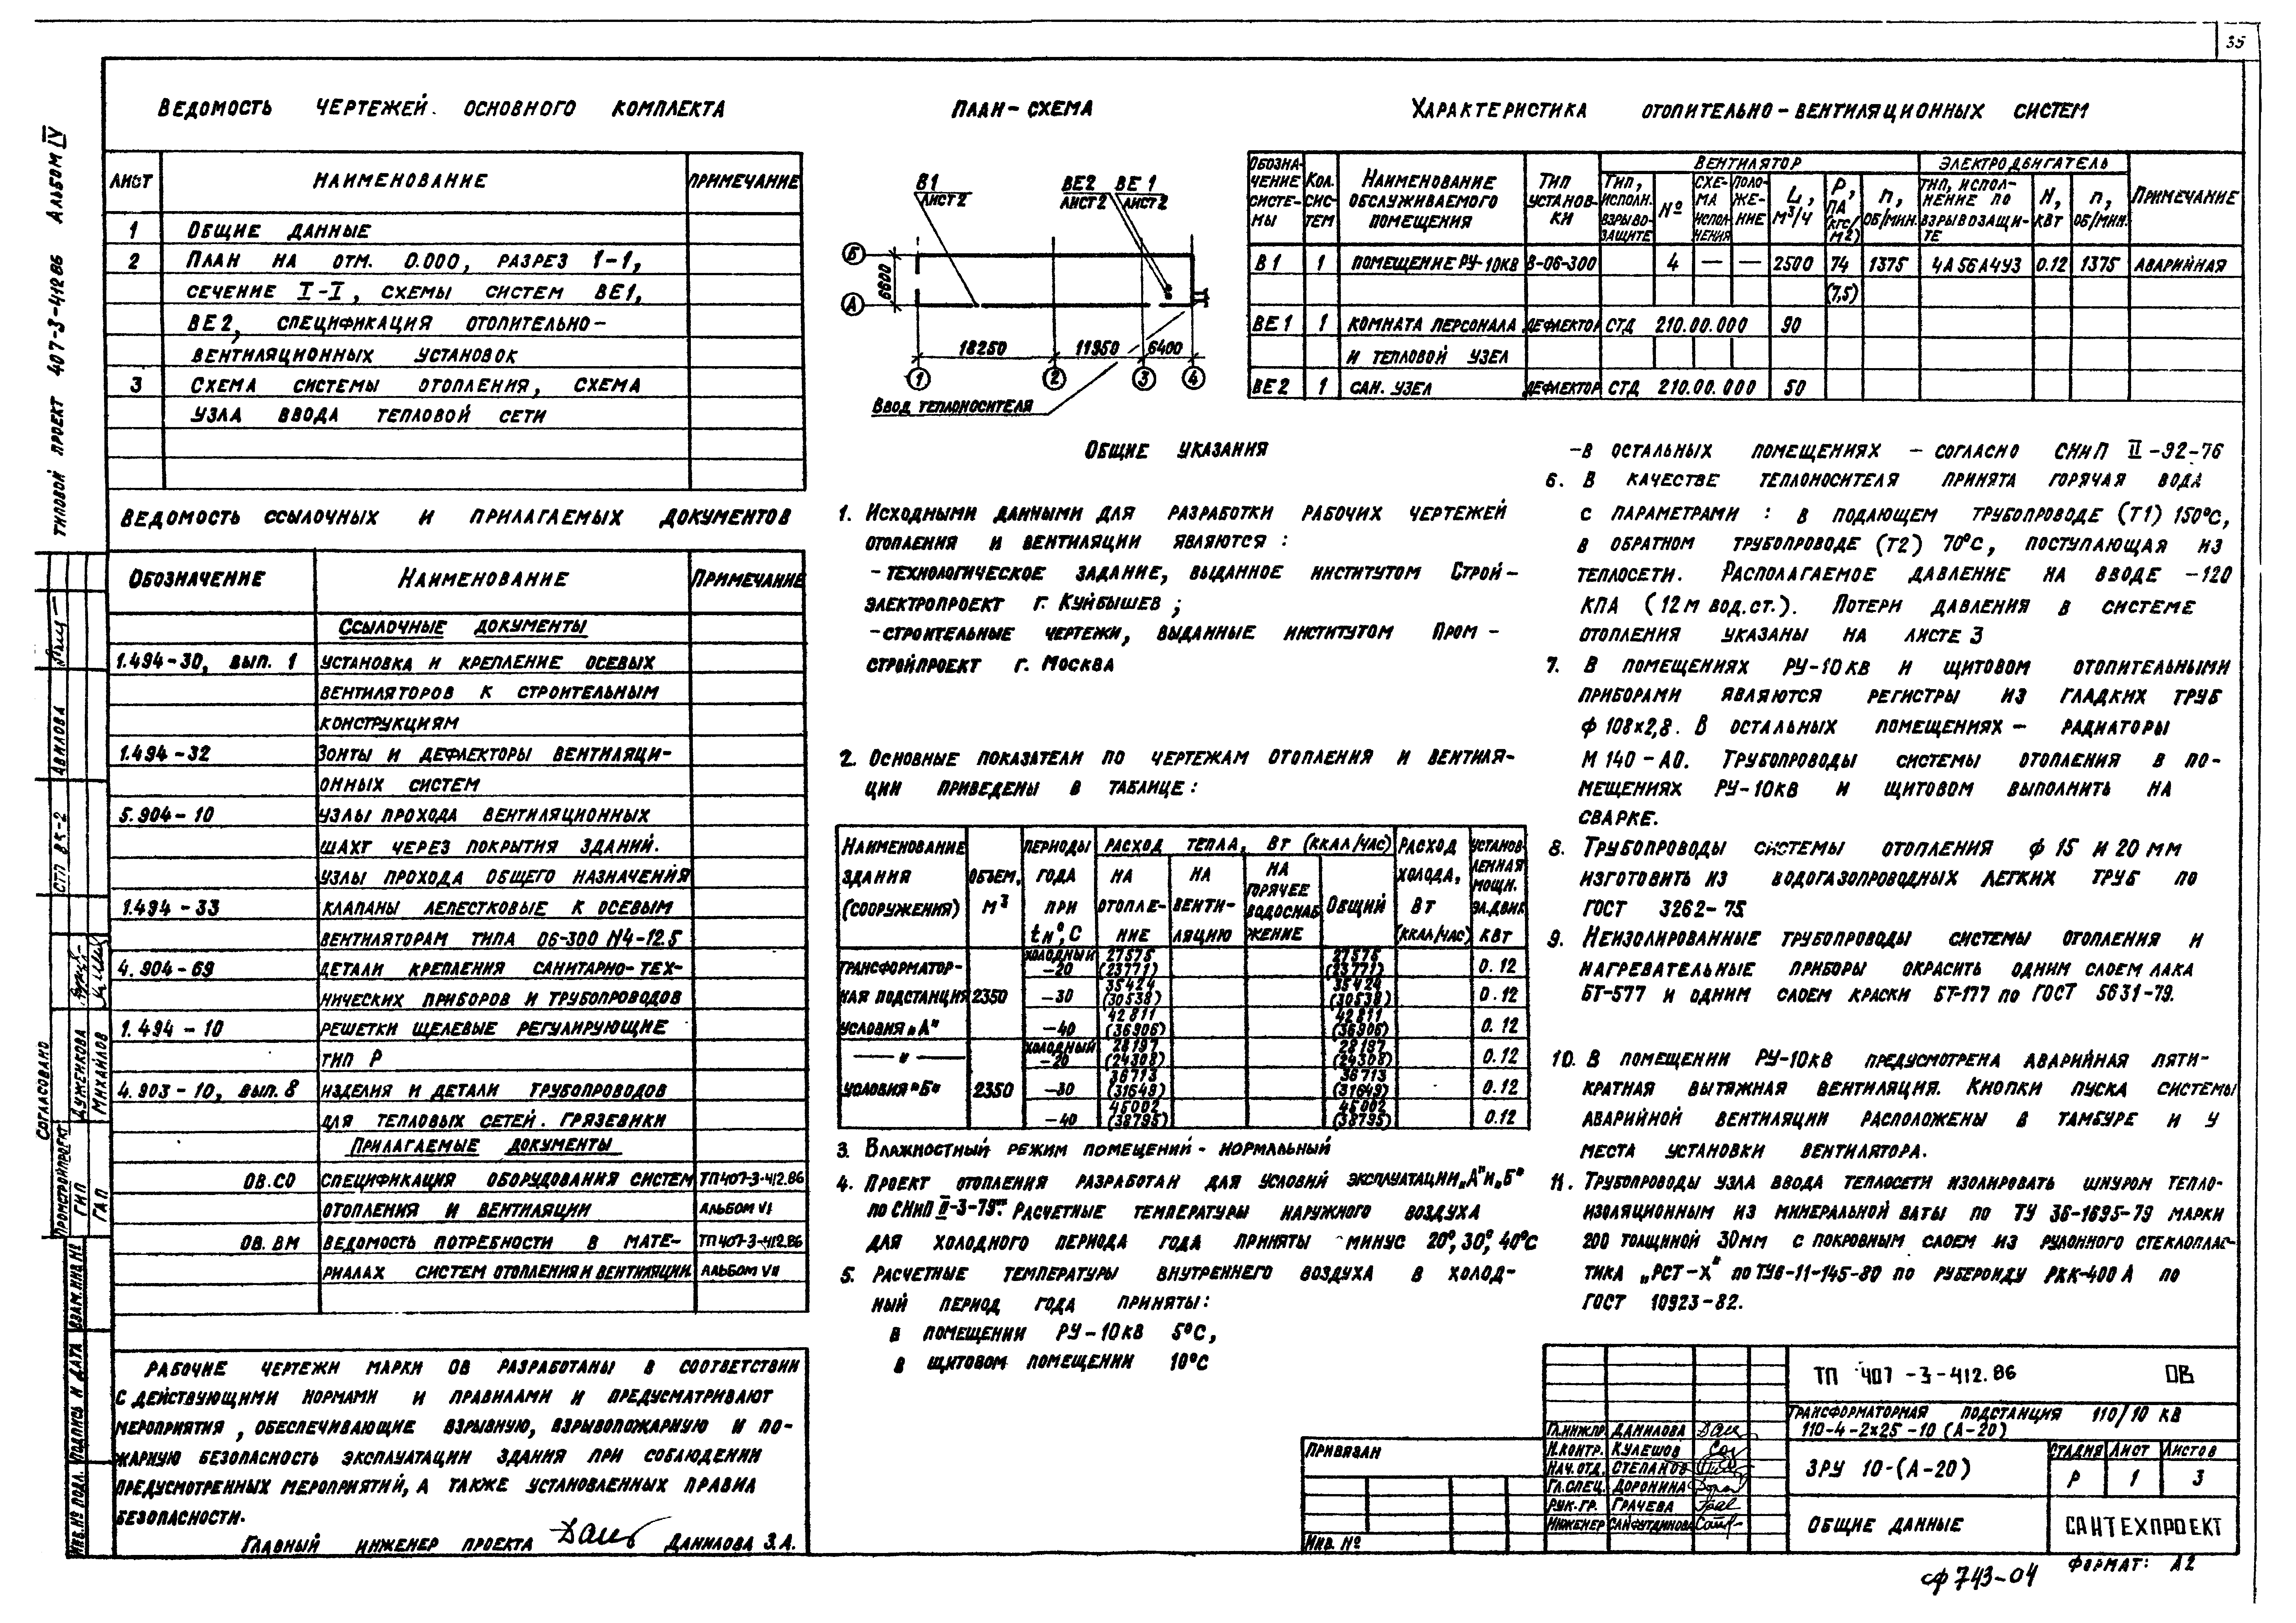 35
ТИПОВОЙ ПРОЕКТ 407-3-412.86 АЛЬБОМ IV
ВЕДОМОСТЬ ЧЕРТЕЖЕЙ ОСНОВНОГО КОМПЛЕКТА
ЛИСТ НАИМЕНОВАНИЕ ПРИМЕЧАНИЕ
1 ОБЩИЕ ДАННЫЕ
2 ПЛАН НА ОТМ. 0.000, РАЗРЕЗ 1-1,
СЕЧЕНИЕ I-I, СХЕМЫ СИСТЕМ ВЕ1,
ВЕ2, СПЕЦИФИКАЦИЯ ОТОПИТЕЛЬНО-
ВЕНТИЛЯЦИОННЫХ УСТАНОВОК
3 СХЕМА СИСТЕМЫ ОТОПЛЕНИЯ, СХЕМА
УЗЛА ВВОДА ТЕПЛОВОЙ СЕТИ
ВЕДОМОСТЬ ССЫЛОЧНЫХ И ПРИЛАГАЕМЫХ ДОКУМЕНТОВ
ОБОЗНАЧЕНИЕ НАИМЕНОВАНИЕ ПРИМЕЧАНИЕ
ССЫЛОЧНЫЕ ДОКУМЕНТЫ
1.494-30, ВЫП. 1 УСТАНОВКА И КРЕПЛЕНИЕ ОСЕВЫХ
ВЕНТИЛЯТОРОВ К СТРОИТЕЛЬНЫМ
КОНСТРУКЦИЯМ
1.494-32 ЗОНТЫ И ДЕФЛЕКТОРЫ ВЕНТИЛЯЦИ-
ОННЫХ СИСТЕМ
5.904-10 УЗЛЫ ПРОХОДА ВЕНТИЛЯЦИОННЫХ
ШАХТ ЧЕРЕЗ ПОКРЫТИЯ ЗДАНИЙ.
УЗЛЫ ПРОХОДА ОБЩЕГО НАЗНАЧЕНИЯ
1.494-33 КЛАПАНЫ ЛЕПЕСТКОВЫЕ К ОСЕВЫМ
ВЕНТИЛЯТОРАМ ТИПА 06-300 N4-12.5
4.904-69 ДЕТАЛИ КРЕПЛЕНИЯ САНИТАРНО-ТЕХ-
НИЧЕСКИХ ПРИБОРОВ И ТРУБОПРОВОДОВ
1.494-10 РЕШЕТКИ ЩЕЛЕВЫЕ РЕГУЛИРУЮЩИЕ
ТИП Р
4.903-10, ВЫП. 8 ИЗДЕЛИЯ И ДЕТАЛИ ТРУБОПРОВОДОВ
ДЛЯ ТЕПЛОВЫХ СЕТЕЙ. ГРЯЗЕВИКИ
ПРИЛАГАЕМЫЕ ДОКУМЕНТЫ
ОВ.СО СПЕЦИФИКАЦИЯ ОБОРУДОВАНИЯ СИСТЕМ ТП 407-3-412.86
ОТОПЛЕНИЯ И ВЕНТИЛЯЦИИ АЛЬБОМ VI
ОВ.ВМ ВЕДОМОСТЬ ПОТРЕБНОСТИ В МАТЕ- ТП 407-3-412.86
РИАЛАХ СИСТЕМ ОТОПЛЕНИЯ И ВЕНТИЛЯЦИИ АЛЬБОМ VII
РАБОЧИЕ ЧЕРТЕЖИ МАРКИ ОВ РАЗРАБОТАНЫ В СООТВЕТСТВИИ
С ДЕЙСТВУЮЩИМИ НОРМАМИ И ПРАВИЛАМИ И ПРЕДУСМАТРИВАЮТ
МЕРОПРИЯТИЯ, ОБЕСПЕЧИВАЮЩИЕ ВЗРЫВНУЮ, ВЗРЫВОПОЖАРНУЮ И ПО-
ЖАРНУЮ БЕЗОПАСНОСТЬ ЭКСПЛУАТАЦИИ ЗДАНИЯ ПРИ СОБЛЮДЕНИИ
ПРЕДУСМОТРЕННЫХ МЕРОПРИЯТИЙ, А ТАКЖЕ УСТАНОВЛЕННЫХ ПРАВИЛ
БЕЗОПАСНОСТИ.
ГЛАВНЫЙ ИНЖЕНЕР ПРОЕКТА ДАНИЛОВА З.А.
СОГЛАСОВАНО
ПРОМСТРОЙПРОЕКТ
СТП ВК-2 АВИЛОВА
ГИП ДУЖЕНКОВА
ГАП МИХАЙЛОВ
ИНВ.№ ПОДЛ. ПОДПИСЬ И ДАТА ВЗАМ.ИНВ.№
ПЛАН-СХЕМА
В1 ЛИСТ 2
ВЕ2 ЛИСТ 2
ВЕ1 ЛИСТ 2
Б
А
6600
18250 11950 6400
1 2 3 4
ВВОД ТЕПЛОНОСИТЕЛЯ
ХАРАКТЕРИСТИКА ОТОПИТЕЛЬНО-ВЕНТИЛЯЦИОННЫХ СИСТЕМ
ОБОЗНА-ЧЕНИЕ СИСТЕ-МЫ КОЛ. СИС-ТЕМ НАИМЕНОВАНИЕ ОБСЛУЖИВАЕМОГО ПОМЕЩЕНИЯ ТИП УСТАНОВ-КИ ВЕНТИЛЯТОР ЭЛЕКТРОДВИГАТЕЛЬ ПРИМЕЧАНИЕ
ТИП, ИСПОЛН. ВЗРЫВО-ЗАЩИТЕ № СХЕ-МА ИСПОЛ-НЕНИЯ ПОЛО-ЖЕ-НИЕ L, М³/Ч Р, ПА (КГС/М2) n, ОБ/МИН. ТИП, ИСПОЛ-НЕНИЕ ПО ВЗРЫВОЗАЩИ-ТЕ N, КВТ n, ОБ/МИН.
В1 1 ПОМЕЩЕНИЕ РУ-10КВ В-06-300 4 — — 2500 74 (7,5) 1375 4А56А4У3 0.12 1375 АВАРИЙНАЯ
ВЕ1 1 КОМНАТА ПЕРСОНАЛА ДЕФЛЕКТОР СТД 210.00.000 90
И ТЕПЛОВОЙ УЗЕЛ
ВЕ2 1 САН. УЗЕЛ ДЕФЛЕКТОР СТД 210.00.000 50
ОБЩИЕ УКАЗАНИЯ
1. ИСХОДНЫМИ ДАННЫМИ ДЛЯ РАЗРАБОТКИ РАБОЧИХ ЧЕРТЕЖЕЙ
ОТОПЛЕНИЯ И ВЕНТИЛЯЦИИ ЯВЛЯЮТСЯ:
-ТЕХНОЛОГИЧЕСКОЕ ЗАДАНИЕ, ВЫДАННОЕ ИНСТИТУТОМ СТРОЙ-
ЭЛЕКТРОПРОЕКТ Г. КУЙБЫШЕВ;
-СТРОИТЕЛЬНЫЕ ЧЕРТЕЖИ, ВЫДАННЫЕ ИНСТИТУТОМ ПРОМ-
СТРОЙПРОЕКТ Г. МОСКВА
2. ОСНОВНЫЕ ПОКАЗАТЕЛИ ПО ЧЕРТЕЖАМ ОТОПЛЕНИЯ И ВЕНТИЛЯ-
ЦИИ ПРИВЕДЕНЫ В ТАБЛИЦЕ:
НАИМЕНОВАНИЕ ЗДАНИЯ (СООРУЖЕНИЯ) ОБЪЕМ, М³ ПЕРИОДЫ ГОДА ПРИ tн°,С РАСХОД ТЕПЛА, ВТ (ККАЛ/ЧАС) РАСХОД ХОЛОДА, ВТ (ККАЛ/ЧАС) УСТАНОВ-ЛЕННАЯ МОЩН. ЭЛ.ДВИГ. КВТ
НА ОТОПЛЕ-НИЕ НА ВЕНТИ-ЛЯЦИЮ НА ГОРЯЧЕЕ ВОДОСНАБ-ЖЕНИЕ ОБЩИЙ
ТРАНСФОРМАТОР- ХОЛОДНЫЙ -20 27575 (23771) 27575 (23771) 0.12
НАЯ ПОДСТАНЦИЯ 2350 -30 35424 (30538) 35424 (30538) 0.12
УСЛОВИЯ „А" -40 42811 (36906) 42811 (36906) 0.12
— " — ХОЛОДНЫЙ -20 28197 (24308) 28197 (24308) 0.12
УСЛОВИЯ "Б" 2350 -30 36713 (31649) 36713 (31649) 0.12
-40 45002 (38795) 45002 (38795) 0.12
3. ВЛАЖНОСТНЫЙ РЕЖИМ ПОМЕЩЕНИЙ - НОРМАЛЬНЫЙ
4. ПРОЕКТ ОТОПЛЕНИЯ РАЗРАБОТАН ДЛЯ УСЛОВИЙ ЭКСПЛУАТАЦИИ „А" И „Б"
ПО СНиП II-3-79** РАСЧЕТНЫЕ ТЕМПЕРАТУРЫ НАРУЖНОГО ВОЗДУХА
ДЛЯ ХОЛОДНОГО ПЕРИОДА ГОДА ПРИНЯТЫ МИНУС 20°, 30°, 40°С
5. РАСЧЕТНЫЕ ТЕМПЕРАТУРЫ ВНУТРЕННЕГО ВОЗДУХА В ХОЛОД-
НЫЙ ПЕРИОД ГОДА ПРИНЯТЫ:
В ПОМЕЩЕНИИ РУ-10КВ 5°С,
В ЩИТОВОМ ПОМЕЩЕНИИ 10°С
-В ОСТАЛЬНЫХ ПОМЕЩЕНИЯХ - СОГЛАСНО СНиП II-92-76
6. В КАЧЕСТВЕ ТЕПЛОНОСИТЕЛЯ ПРИНЯТА ГОРЯЧАЯ ВОДА
С ПАРАМЕТРАМИ: В ПОДАЮЩЕМ ТРУБОПРОВОДЕ (Т1) 150°С,
В ОБРАТНОМ ТРУБОПРОВОДЕ (Т2) 70°С, ПОСТУПАЮЩАЯ ИЗ
ТЕПЛОСЕТИ. РАСПОЛАГАЕМОЕ ДАВЛЕНИЕ НА ВВОДЕ -120
КПА (12М ВОД.СТ.). ПОТЕРИ ДАВЛЕНИЯ В СИСТЕМЕ
ОТОПЛЕНИЯ УКАЗАНЫ НА ЛИСТЕ 3
7. В ПОМЕЩЕНИЯХ РУ-10КВ И ЩИТОВОМ ОТОПИТЕЛЬНЫМИ
ПРИБОРАМИ ЯВЛЯЮТСЯ РЕГИСТРЫ ИЗ ГЛАДКИХ ТРУБ
ф 108х2,8. В ОСТАЛЬНЫХ ПОМЕЩЕНИЯХ - РАДИАТОРЫ
М 140-АО. ТРУБОПРОВОДЫ СИСТЕМЫ ОТОПЛЕНИЯ В ПО-
МЕЩЕНИЯХ РУ-10КВ И ЩИТОВОМ ВЫПОЛНИТЬ НА
СВАРКЕ.
8. ТРУБОПРОВОДЫ СИСТЕМЫ ОТОПЛЕНИЯ ф 15 И 20 ММ
ИЗГОТОВИТЬ ИЗ ВОДОГАЗОПРОВОДНЫХ ЛЕГКИХ ТРУБ ПО
ГОСТ 3262-75
9. НЕИЗОЛИРОВАННЫЕ ТРУБОПРОВОДЫ СИСТЕМЫ ОТОПЛЕНИЯ И
НАГРЕВАТЕЛЬНЫЕ ПРИБОРЫ ОКРАСИТЬ ОДНИМ СЛОЕМ ЛАКА
БТ-577 И ОДНИМ СЛОЕМ КРАСКИ БТ-177 ПО ГОСТ 5631-79.
10. В ПОМЕЩЕНИИ РУ-10КВ ПРЕДУСМОТРЕНА АВАРИЙНАЯ ПЯТИ-
КРАТНАЯ ВЫТЯЖНАЯ ВЕНТИЛЯЦИЯ. КНОПКИ ПУСКА СИСТЕМЫ
АВАРИЙНОЙ ВЕНТИЛЯЦИИ РАСПОЛОЖЕНЫ В ТАМБУРЕ И У
МЕСТА УСТАНОВКИ ВЕНТИЛЯТОРА.
11. ТРУБОПРОВОДЫ УЗЛА ВВОДА ТЕПЛОСЕТИ ИЗОЛИРОВАТЬ ШНУРОМ ТЕПЛО-
ИЗОЛЯЦИОННЫМ ИЗ МИНЕРАЛЬНОЙ ВАТЫ ПО ТУ 36-1695-79 МАРКИ
200 ТОЛЩИНОЙ 30ММ С ПОКРОВНЫМ СЛОЕМ ИЗ РУЛОННОГО СТЕКЛОПЛАС-
ТИКА „РСТ-Х" ПО ТУ6-11-145-80 ПО РУБЕРОИДУ РКК-400А ПО
ГОСТ 10923-82.
ПРИВЯЗАН
ИНВ. №
ГЛ.ИНЖ.ПР. ДАНИЛОВА
Н.КОНТР. КУЛЕШОВ
НАЧ.ОТД. СТЕПАНОВ
ГЛ.СПЕЦ. ДОРОНИНА
РУК.ГР. ГРАЧЕВА
ИНЖЕНЕР САЙФУТДИНОВА
ТП 407-3-412.86 ОВ
ТРАНСФОРМАТОРНАЯ ПОДСТАНЦИЯ 110/10 КВ
110-4-2х25-10 (А-20)
ЗРУ 10-(А-20)
СТАДИЯ ЛИСТ ЛИСТОВ
Р 1 3
ОБЩИЕ ДАННЫЕ
САНТЕХПРОЕКТ
ФОРМАТ: А2
СФ 743-04